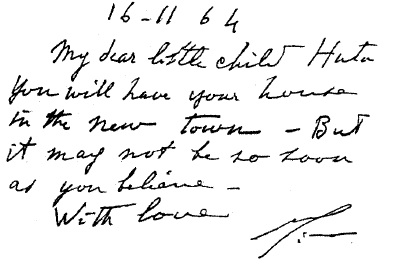 16-11 64
My dear little child Huta
You will have your house
in the new town – But
it may not be so soon
as you believe –
With love